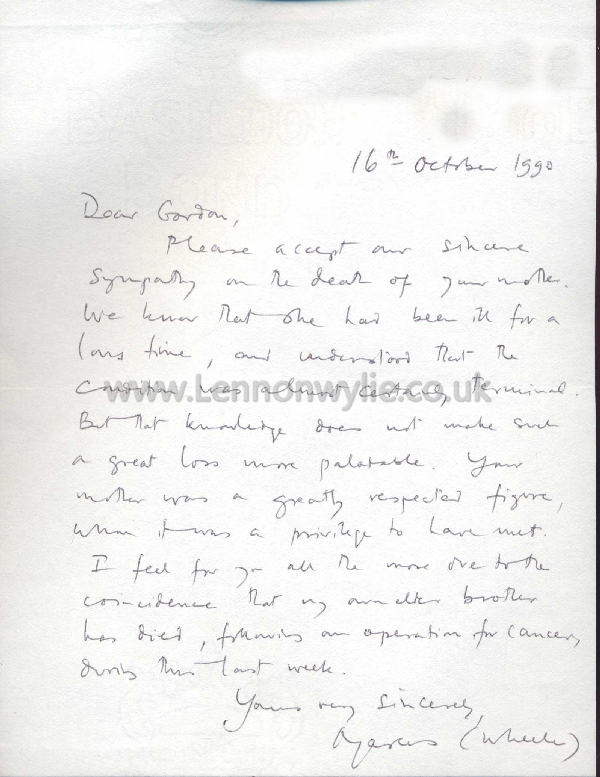 16th October 1990
Dear Gordon,
Please accept our sincere
sympathy on the death of your mother.
We know that she had been ill for a
long time, and understood that the
condition was almost certainly terminal.
www.Lennonwylie.co.uk
But that knowledge does not make such
a great loss more palatable. Your
mother was a greatly respected figure,
whom it was a privilege to have met.
I feel for you all the more due to the
coincidence that my own elder brother
has died, following an operation for cancer,
during this last week.
Yours very sincerely,
(Wheeler)